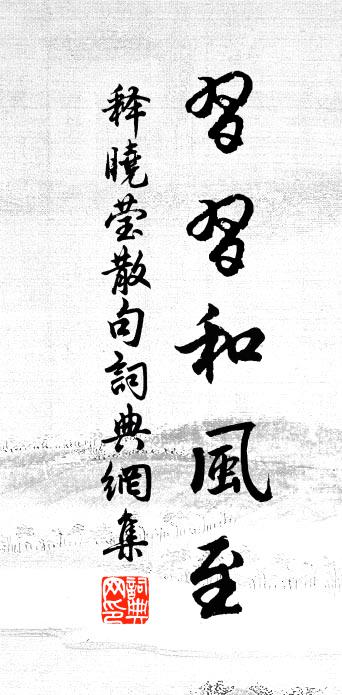 習習和風至
释曉莹散句詞典網集
詞典网印